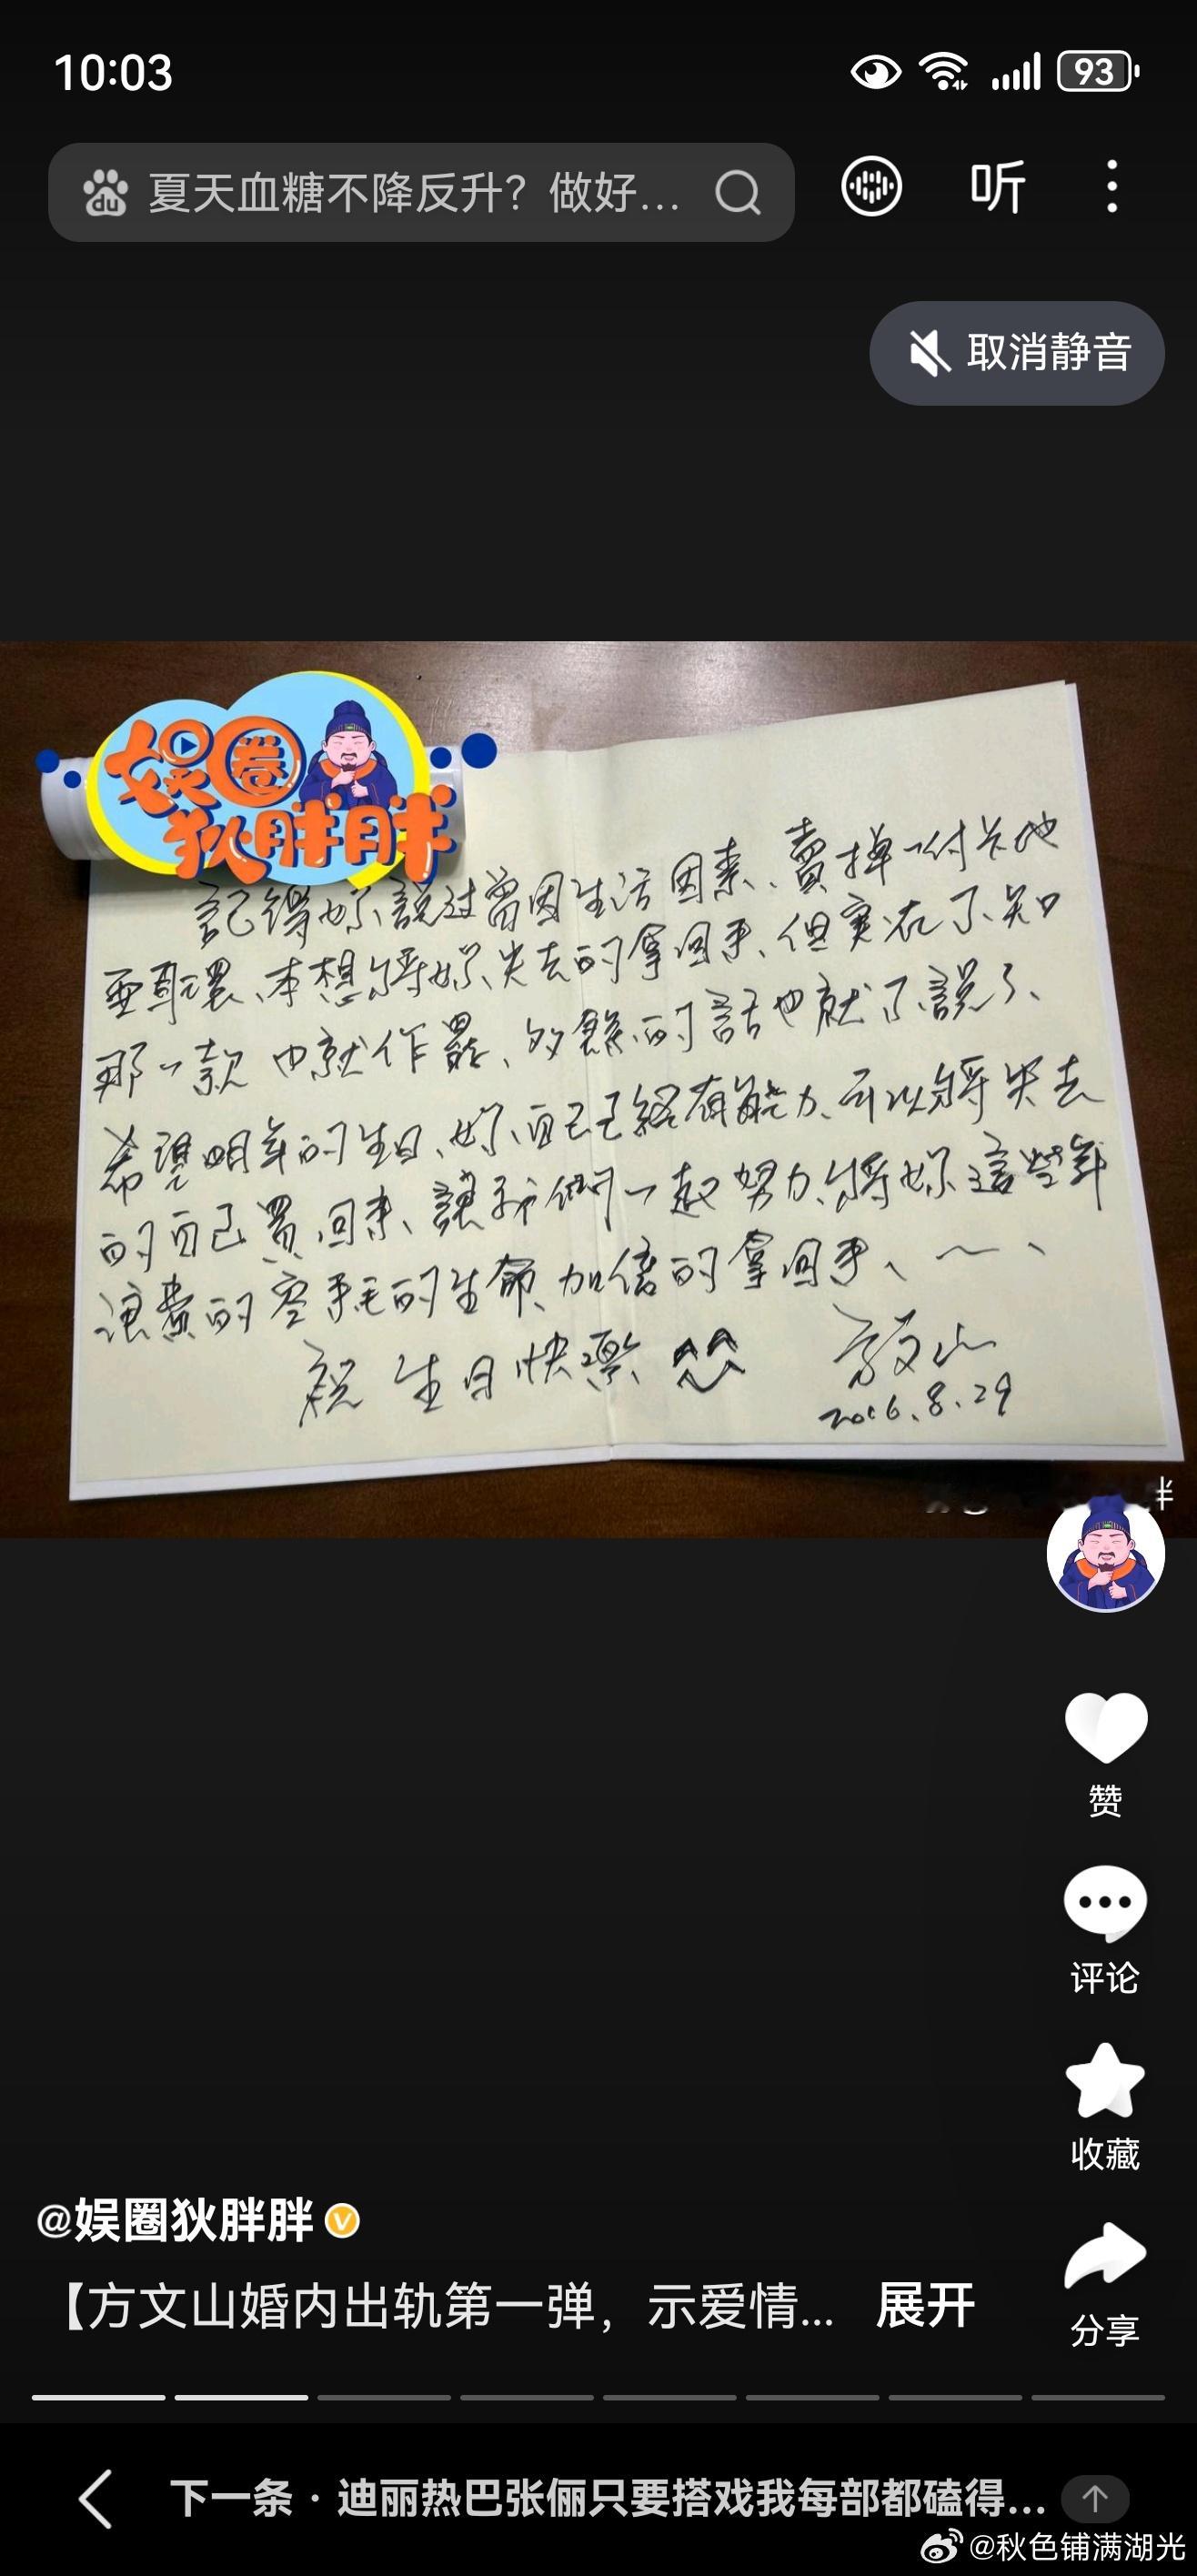 10:03
93
夏天血糖不降反升？做好...
听
取消静音
娱圈
狄胖胖
記得妳說過曾因生活因素、賣掉一付卡地
亞耳環、本想將妳失去的拿回來、但實在不知
那一款 也就作罷、多餘的話也就不說了、
希望明年的生日、妳自己已經有能力、可以將失去
的自己買回來、讓我們一起努力、將妳這些年
浪費的 的生命、加倍的拿回來、
祝 生日快樂 文山
2016.8.29
赞
评论
收藏
分享
@娱圈狄胖胖
【方文山婚内出轨第一弹，示爱情... 展开
下一条 · 迪丽热巴张俪只要搭戏我每部都磕得...
@秋色铺满湖光